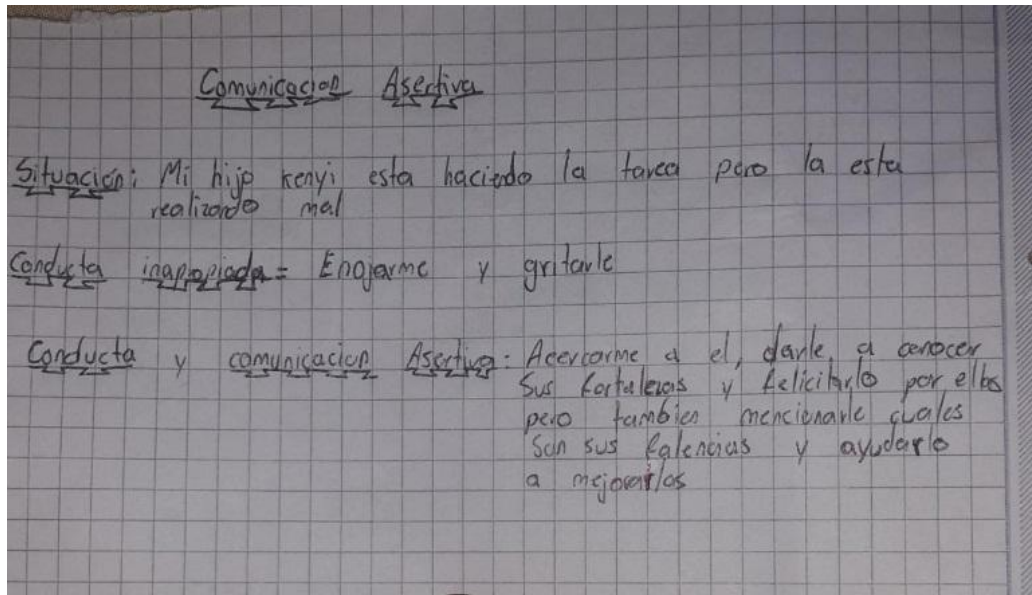 Comunicacion Asertiva
Situación: Mi hijo Kenyi esta haciendo la tarea pero la esta
realizando mal
Conducta inapropiada = Enojarme y gritarle
Conducta y comunicacion Asertiva: Acercarme a el, darle a conocer
Sus fortalezas y felicitarlo por ellas
pero tambien mencionarle cuales
Son sus falencias y ayudarlo
a mejorarlos